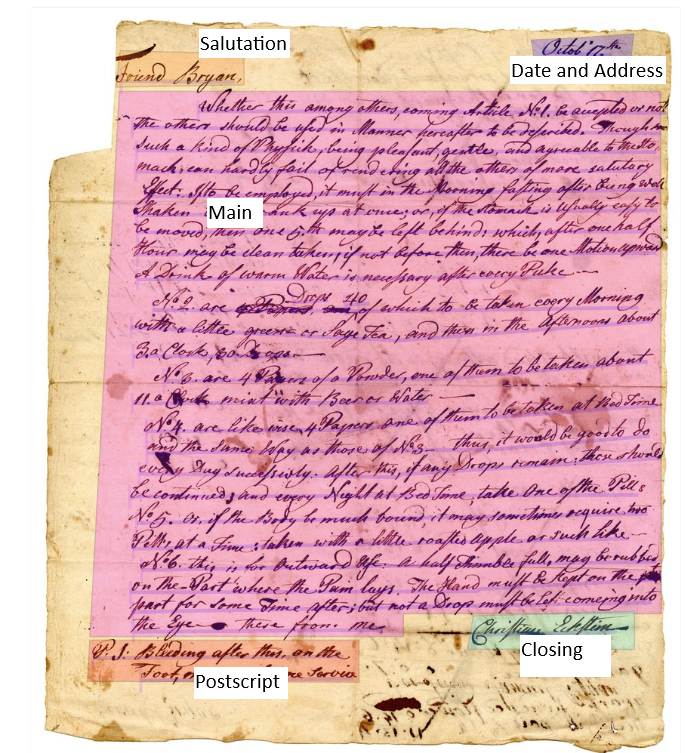 Salutation
Octob 17th
Friend Bryan,
Date and Address
Whether this among others, coming Article No. 1. be accepted or not
the others should be used in Manner hereafter to be described. Though
such a kind of Physick, being pleasant, gentle, and agreeable to the Sto
mach, can hardly fail of rendering all the others of more salutary
Efect. If to be employed, it must in the Morning fasting after being well
Shaken
Main
ank up at once; or, if the Stomach is Usually easy to
be moved, then one 5th may be left behind; which, after one half
Hour may be clean taken, if not before then, there be one Motion upward
A Drink of warm Water is necessary after every Puke
Drops 40
No. 2. are of which to be taken every Morning
with a little green or Sage Tea, and thus in the afternoons about
3. o Clock, 30
No. 3. are 4 Papers of a Powder, one of them to be taken about
11. o Clock mixt with Beer or Water
No. 4. are like wise 4 Papers one of them to be taken at Bed Time
and the Same Way as those of No. 3 thus, it would be good to do
every Day successively. After this, if any Drops remain, those should
be continued; and every Night at Bed Time, take One of the Pills
No. 5. or, if the Body be much bound, it may sometimes require two
Pills, at a Time, taken with a little roasted apple or such like
No. 6. this is for Outward Use. a half Thimble full, may be rubbed
on the Part where the Pain lays. The Hand must be Kept on the
part for Some Time after; but not a Drop must be Let comeing into
the Eye these from me
Christian Eckstein
P. S. Bleeding after this, on the
Closing
Foot, Service
Postscript